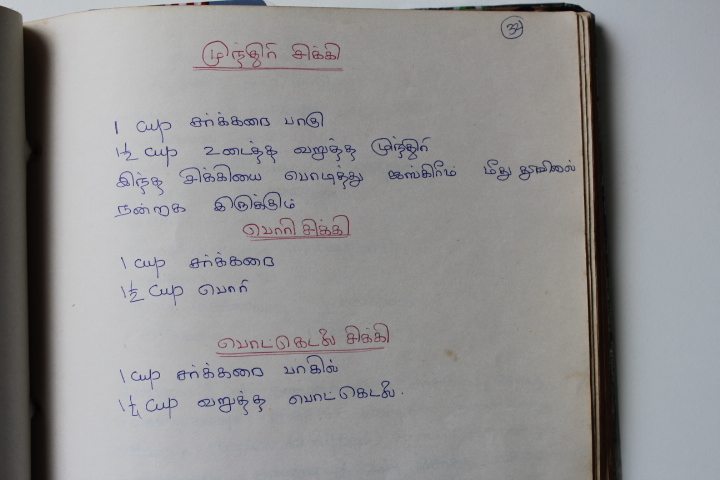 32
முந்திரி சிக்கி
1 cup சர்க்கரை பாகு
1 1/2 cup உடைத்த வறுத்த முந்திரி
இந்த சிக்கியை பொடித்து ஐஸ்கிரீம் மீது தூவினால்
நன்றாக இருக்கும்
பொரி சிக்கி
1 cup சர்க்கரை
1 1/2 cup பொரி
பொட்கெடலை சிக்கி
1 cup சர்க்கரை பாகில்
1 1/4 cup வறுத்த பொட்கெடலை.